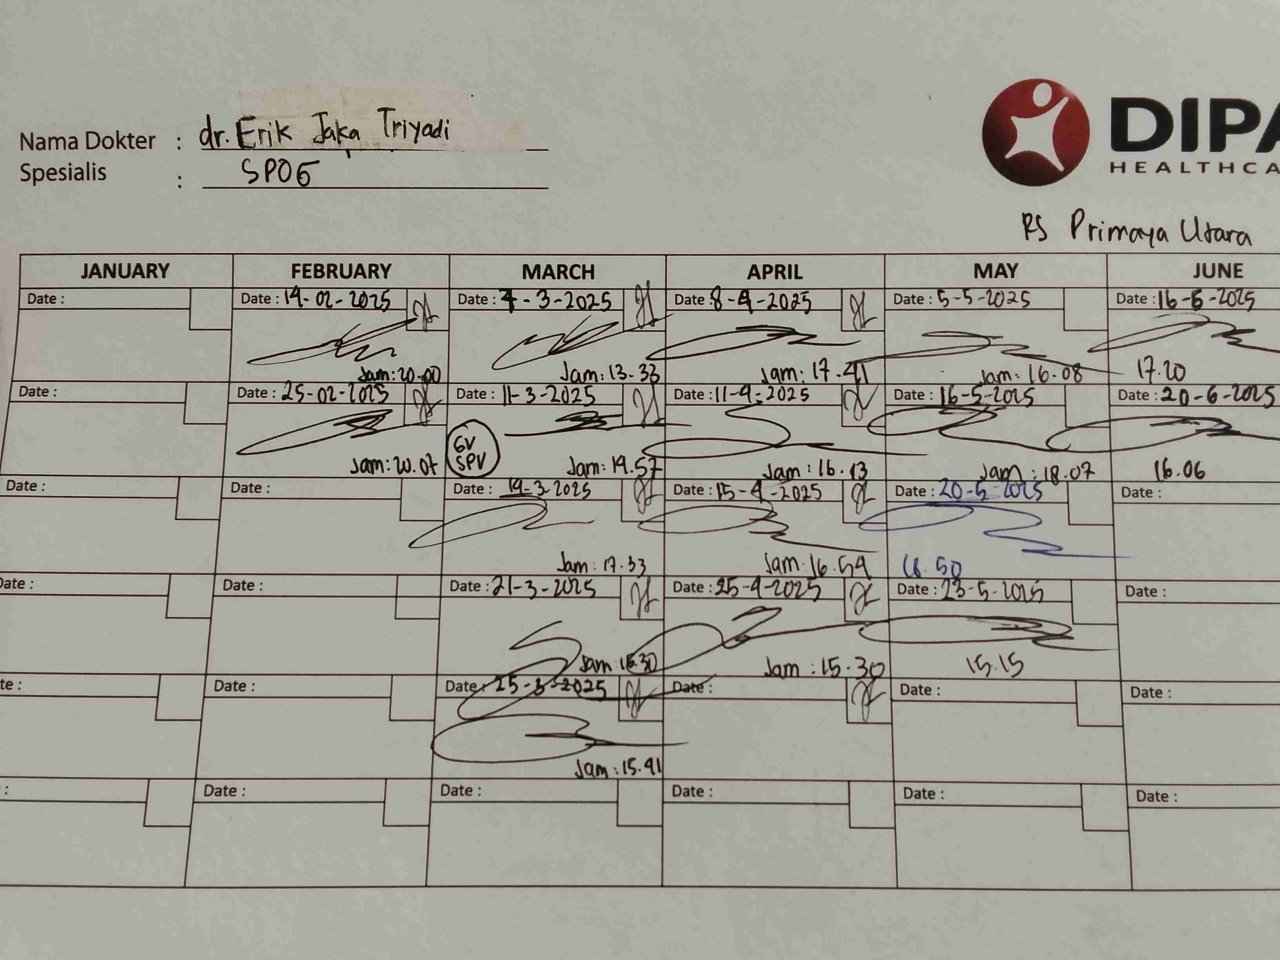 Nama Dokter : dr. Erik Jaka Triyadi
Spesialis : SPOG
DIPA
HEALTHCA
RS Primaya Utara
JANUARY FEBRUARY MARCH APRIL MAY JUNE
Date : Date : 14-02-2025 Date : 7-3-2025 Date : 8-4-2025 Date : 5-5-2025 Date : 16-6-2025
Jam: 20.00 Jam: 13.33 Jam: 17.41 Jam: 16.08 17.20
Date : Date : 25-02-2025 Date : 11-3-2025 Date : 11-4-2025 Date : 16-5-2025 Date : 20-6-2025
GV
SPV
Jam: 20.07 Jam: 19.57 Jam: 16.13 Jam: 18.07 16.06
Date : Date : Date : 19-3-2025 Date : 15-4-2025 Date : 20-5-2025 Date :
Jam: 17.33 Jam. 16.54 16.50
Date : Date : Date : 21-3-2025 Date : 25-4-2025 Date : 23-5-2025 Date :
Jam 15.30 Jam : 15.30 15.15
te : Date : Date : 25-3-2025 Date : Date : Date :
Jam: 15.41
: Date : Date : Date : Date : Date :